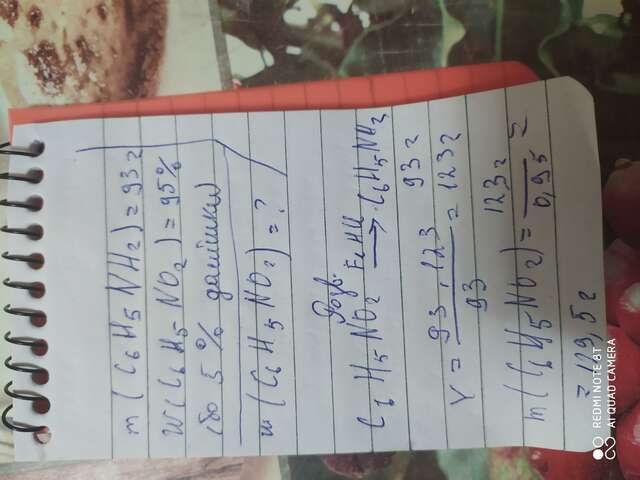 m (C6H5NH2) = 93г
W(C6H5NO2) = 95%
(бо 5% домішки)
m (C6H5NO2) = ?
Розв.
C6H5NO2 Fe HCl → C6H5NH2
93г
Y = 93 · 123 / 93 = 123г
123г
m(C6H5NO2) = / 0,95 =
= 129,5г
REDMI NOTE 8T
AI QUAD CAMERA